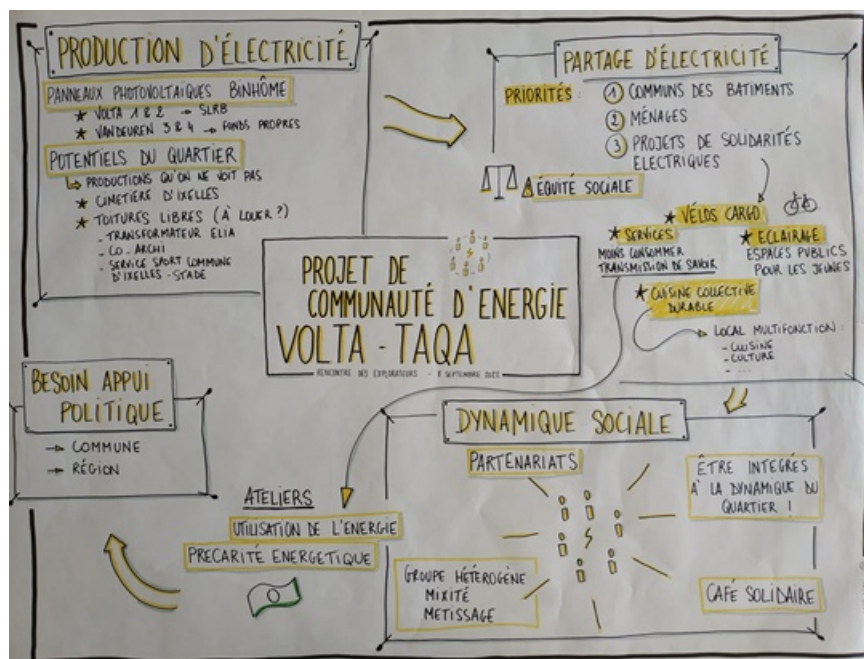 PRODUCTION D'ÉLECTRICITÉ
PANNEAUX PHOTOVOLTAIQUES BINHÔME
★ VOLTA 1 & 2 → SLRB
★ VANDEUREN 3 & 4 → FONDS PROPRES
POTENTIELS DU QUARTIER
PRODUCTIONS QU'ON NE VOIT PAS
★ CIMETIÈRE D'IXELLES
★ TOITURES LIBRES (À LOUER ?)
- TRANSFORMATEUR ELIA
- CO-ARCHI
- SERVICE SPORT COMMUNE
D'IXELLES - STADE
PARTAGE D'ÉLECTRICITÉ
PRIORITÉS :
1 COMMUNS DES BATIMENTS
2 MÉNAGES
3 PROJETS DE SOLIDARITÉS
ELECTRIQUES
ÉQUITÉ SOCIALE
★ VÉLOS CARGO
★ SERVICES
MOINS CONSOMMER
TRANSMISSION DE SAVOIR
★ ECLAIRAGE
ESPACES PUBLICS
POUR LES JEUNES
★ CUISINE COLLECTIVE
DURABLE
LOCAL MULTIFONCTION :
- CUISINE
- CULTURE
- ...
PROJET DE
COMMUNAUTÉ D'ENERGIE
VOLTA - TAQA
RENCONTRE DES EXPLORATEURS - 8 SEPTEMBRE 2022
BESOIN APPUI
POLITIQUE
→ COMMUNE
→ RÉGION
DYNAMIQUE SOCIALE
PARTENARIATS
ÊTRE INTEGRÉS
À LA DYNAMIQUE DU
QUARTIER !
ATELIERS
UTILISATION DE L'ENERGIE
PRECARITÉ ENERGETIQUE
GROUPE HÉTÉROGÈNE
MIXITÉ
METISSAGE
CAFÉ SOLIDAIRE